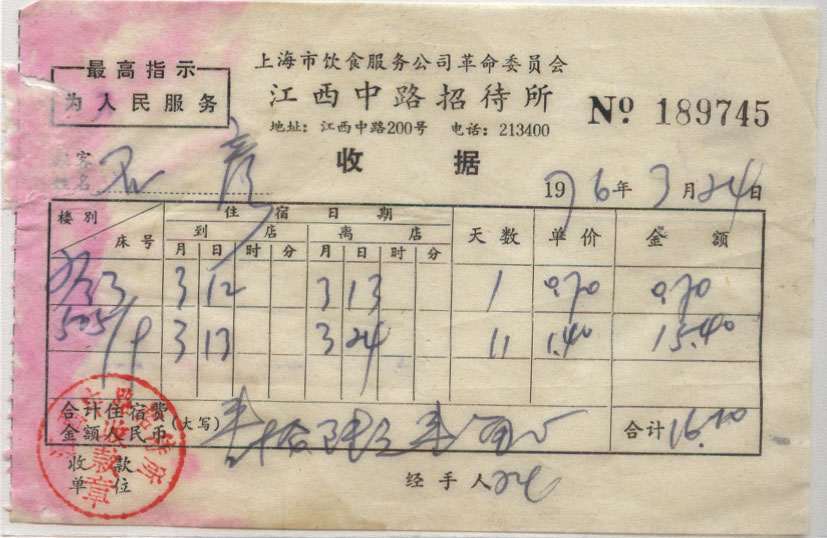 最高指示
为人民服务
上海市饮食服务公司革命委员会
江西中路招待所
No 189745
地址：江西中路200号 电话：213400
收据
客
姓名 彦
1976年3月24日
楼别 床号 住宿日期 天数 单价 金额
到店 离店
月 日 时 分 月 日 时 分
3 12 3 13 1 0.70 0.70
505/9 3 13 3 24 11 1.40 15.40
合计住宿费
金额人民币 (大写) 合计 16.10
收款
单位
经手人
收款章